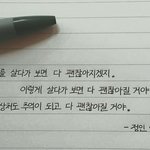 을 살다가 보면 다 괜찮아지겠지.
이렇게 살다가 보면 다 괜찮아질 거야.
상처도 추억이 되고, 다 괜찮아질 거야.
- 정민